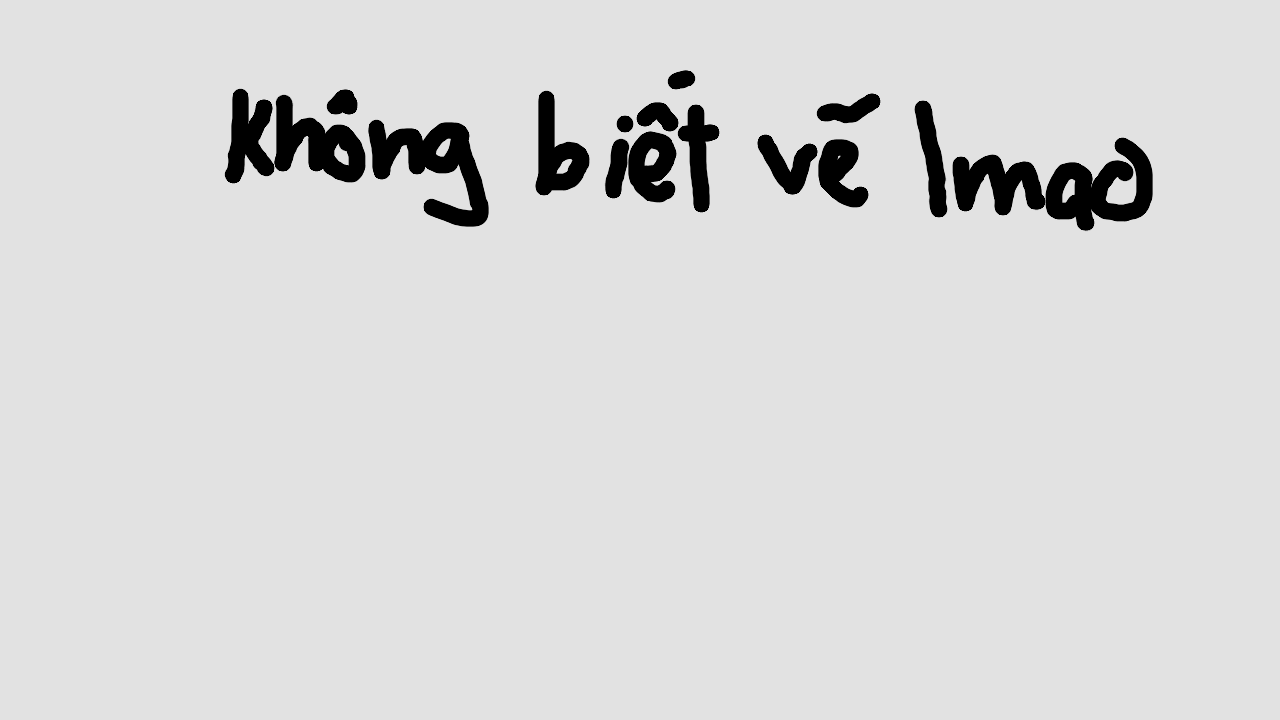 không biết vẽ lmao